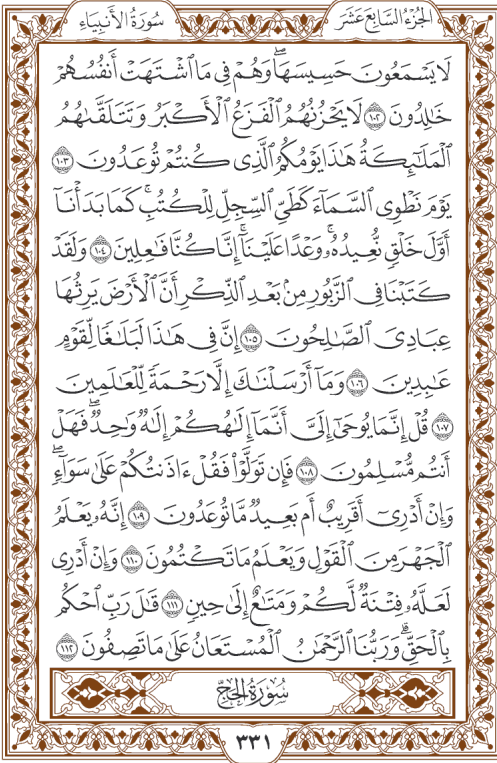 الجُزْءُ السَّابِعَ عَشَرَ
سُورَةُ الأَنبِيَاءِ
لَا يَسْمَعُونَ حَسِيسَهَاۖ وَهُمْ فِي مَا ٱشْتَهَتْ أَنفُسُهُمْ
خَٰلِدُونَ ١٠٢ لَا يَحْزُنُهُمُ ٱلْفَزَعُ ٱلْأَكْبَرُ وَتَتَلَقَّىٰهُمُ
ٱلْمَلَٰٓئِكَةُ هَٰذَا يَوْمُكُمُ ٱلَّذِي كُنتُمْ تُوعَدُونَ ١٠٣
يَوْمَ نَطْوِي ٱلسَّمَآءَ كَطَيِّ ٱلسِّجِلِّ لِلْكُتُبِۚ كَمَا بَدَأْنَآ
أَوَّلَ خَلْقٍ نُّعِيدُهُۥۚ وَعْدًا عَلَيْنَآۚ إِنَّا كُنَّا فَٰعِلِينَ ١٠٤ وَلَقَدْ
كَتَبْنَا فِي ٱلزَّبُورِ مِنۢ بَعْدِ ٱلذِّكْرِ أَنَّ ٱلْأَرْضَ يَرِثُهَا
عِبَادِيَ ٱلصَّٰلِحُونَ ١٠٥ إِنَّ فِي هَٰذَا لَبَلَٰغًا لِّقَوْمٍ
عَٰبِدِينَ ١٠٦ وَمَآ أَرْسَلْنَٰكَ إِلَّا رَحْمَةً لِّلْعَٰلَمِينَ
١٠٧ قُلْ إِنَّمَا يُوحَىٰٓ إِلَيَّ أَنَّمَآ إِلَٰهُكُمْ إِلَٰهٌ وَٰحِدٌۖ فَهَلْ
أَنتُم مُّسْلِمُونَ ١٠٨ فَإِن تَوَلَّوْا۟ فَقُلْ ءَاذَنتُكُمْ عَلَىٰ سَوَآءٍۖ
وَإِنْ أَدْرِيٓ أَقَرِيبٌ أَم بَعِيدٌ مَّا تُوعَدُونَ ١٠٩ إِنَّهُۥ يَعْلَمُ
ٱلْجَهْرَ مِنَ ٱلْقَوْلِ وَيَعْلَمُ مَا تَكْتُمُونَ ١١٠ وَإِنْ أَدْرِي
لَعَلَّهُۥ فِتْنَةٌ لَّكُمْ وَمَتَٰعٌ إِلَىٰ حِينٍ ١١١ قَٰلَ رَبِّ ٱحْكُم
بِٱلْحَقِّۗ وَرَبُّنَا ٱلرَّحْمَٰنُ ٱلْمُسْتَعَانُ عَلَىٰ مَا تَصِفُونَ ١١٢
سُورَةُ الحَجِّ
٣٣١